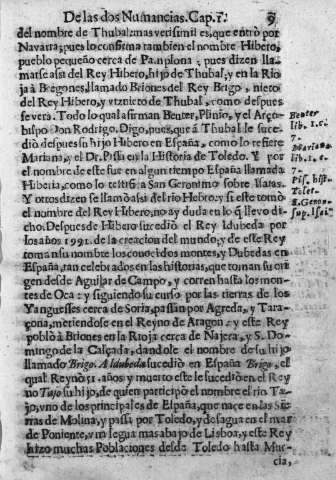 De las dos Numancias. Cap. 1. 9
del nombre de Thubal: mas verisimil es, que entró por
Navarra; pues lo confirma tambien el nombre Hibero,
pueblo pequeño cerca de Pamplona; pues dizen lla-
marse assi del Rey Hibero, hijo de Thubal, y en la Rio
ja à Bregones, llamado Briones del Rey Brigo, nieto
del Rey Hibero, y viznieto de Thubal, como despues
se verà. Todo lo qual afirman Beuter, Plinio, y el Arço-
bispo Don Rodrigo. Digo, pues, que à Thubal le suce-
diò despues su hijo Hibero en España, como lo refiere
Mariana, y el Dr. Pissa en la Historia de Toledo. Y por
el nombre de este fue en algun tiempo España llamada
Hiberia, como lo testifica San Geronimo sobre Isaias.
Y otros dizen se llamò assi del rio Hebro: y si este tomò
el nombre del Rey Hibero, no ay duda en lo q̃ llevo di
cho. Despues de Hibero sucediò el Rey Idubeda por
los años 1991. de la creacion del mundo; y de este Rey
toman su nombre los conocidos montes, y Dubedas en
España, tan celebrados en las historias, que toman su ori
gen desde Aguilar de Campo, y corren hasta los mon-
tes de Oca: y siguiendo su curso por las tierras de los
Yangueses cerca de Soria, passan por Agreda, y Tara-
çona, metiendose en el Reyno de Aragon: y este Rey
poblò à Briones en la Rioja cerca de Najera, y S. Do-
mingo de la Calçada, dandole el nombre de su hijo
llamado Brigo. A Idubeda sucediò en España Brigo, el
qual Reynò 51. años y muerto este le sucediò en el Rey
no Tajo su hijo, de quien participò el nombre el rio Ta-
jo, vno de los principales de España, que nace en las Sier
ras de Molina, y passa por Toledo, y desagua en el mar
de Poniente, vna legua mas abajo de Lisboa, y este Rey
hizo muchas Poblaciones desde Toledo hasta Mur-
cia,
Beuter
lib. 1. c.
7.
Mariana
lib. 1. c.
7.
Pis. hist.
Tolet.
S. Geron.
sup. Isai.